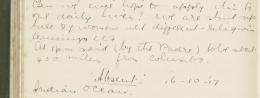 Can we ever hope to apply this to
our daily lives? We are shut up
here by women all different religious
At 1pm said (by the Padre) to be about
400 miles from Colombo.
"Absent" 16-10-17
Indian Ocean.